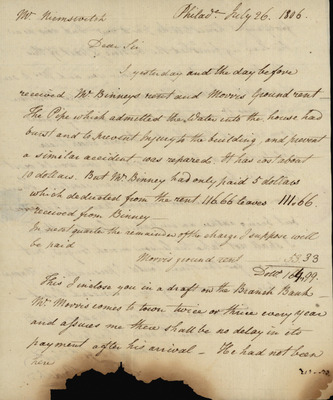 Mr. Niemsevitch
Philada. July 26. 1806.
Dear Sir
I yesterday and the day before
received Mr Binneys rent and Morris Ground rent
The Pipe which admitted the Water into the house had
burst and to prevent Injury to the building, and prevent
a similar accident was repaired. It has cost about
10 dollars. But Mr Binney had only paid 5 dollars
which deducted from the rent 116.66 leaves 111.66.
received from Binney
In next quarter the remainder of the charge I suppose will
be paid
Morris ground rent 53 33
Dolls 164.99.
This I inclose you in a draft on the Branch Bank
Mr Morris comes to town twice or thrice every year
and assures me there shall be no delay in its
payment after his arrival - He had not been
here